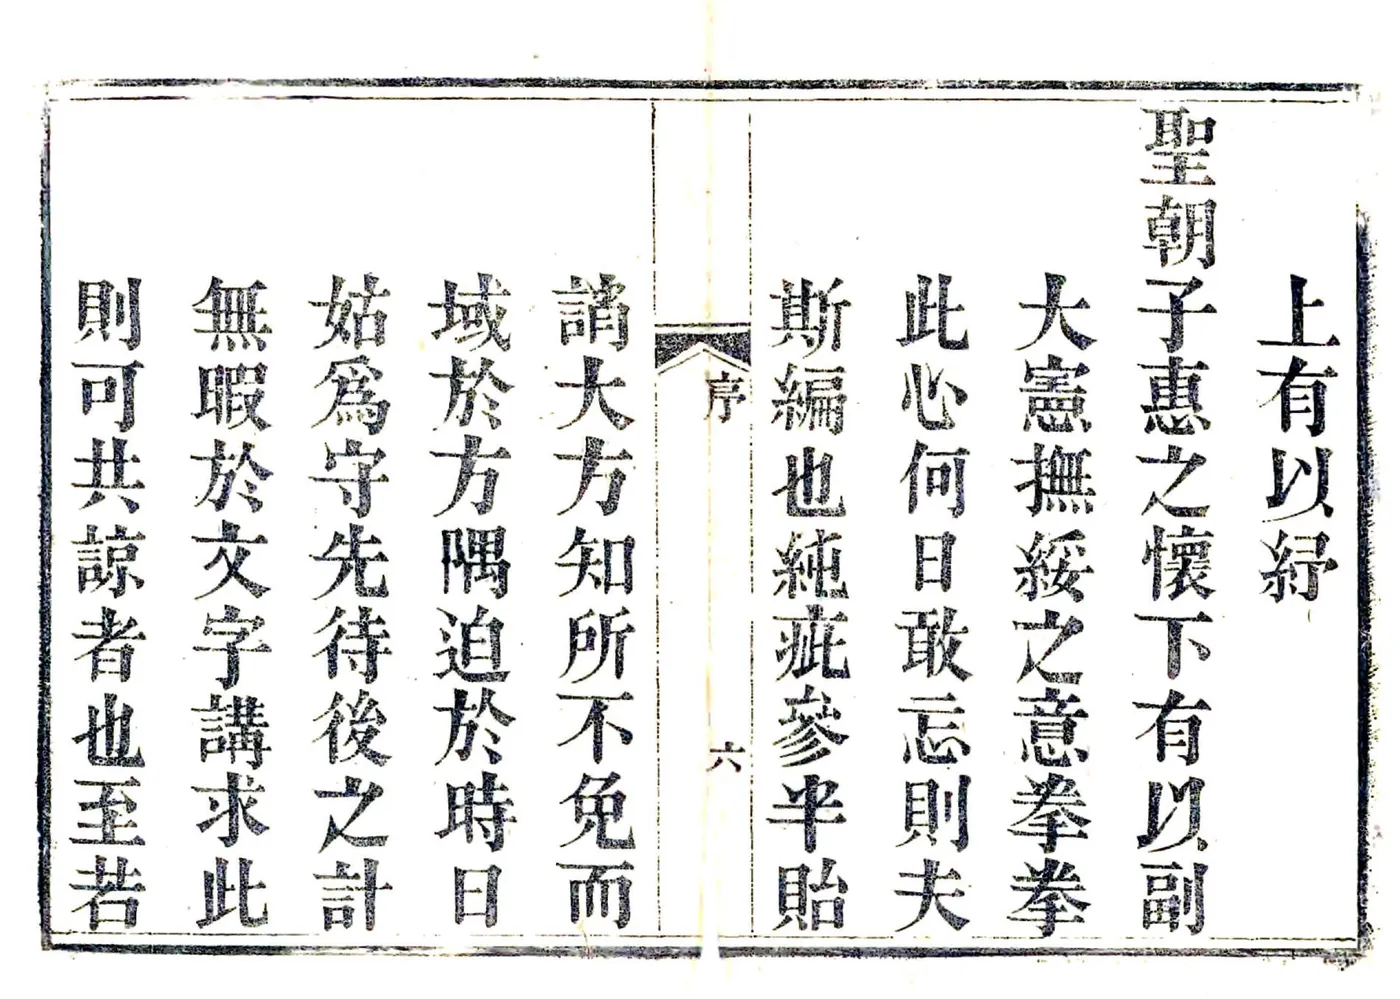 上有以紓
聖朝子惠之懷下有以副
大憲撫綏之意拳拳
此心何日敢忘則夫
斯編也純疵參半貽
序
六
誚大方知所不免而
域於方隅迫於時日
姑爲守先待後之計
無暇於文字講求此
則可共諒者也至若